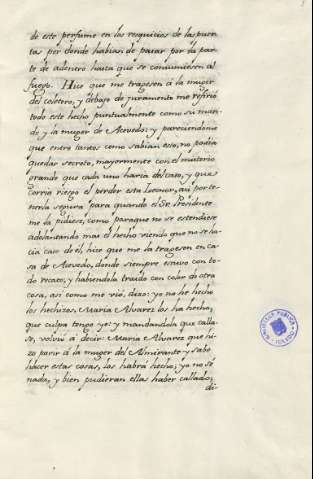 de este perfume en los resquicios de las puer-
tas por donde habian de pasar por la par-
te de adentro hasta que se consumiesen al
fuego. Hice que me tragesen á la muger
del coletero, y debajo de juramento me refirió
todo este hecho puntualmente como su mari-
do y la muger de Acevedo: y pareciendome
que entre tantos como sabian esto, no podia
quedar secreto, mayormente con el misterio
grande que cada uno haria del caso, y que
corria riesgo el perder esta Leonor, asi por te-
nerla segura para quando el Sr. Presidente
me la pidiese, como para que no se estendiese
adelantando mas el hecho viendo que no se ha-
cia caso de él, hice que me la tragesen en ca-
sa de Acevedo, donde siempre estuvo con to-
do recato, y habiendola traido con color de otra
cosa, asi como me vió, dixo: yo no he hecho
los hechizos, Maria Alvarez los ha hecho,
que culpa tengo yo: y mandandola que calla-
se, volvió á decir: Maria Alvarez que hi-
zo parir á la muger del Almirante y sabe
hacer estas cosas, los habrá hecho; yo no sé
nada, y bien pudieran ellas haber callado;
di-
BIBLIOTECA PUBLICA
TOLEDO